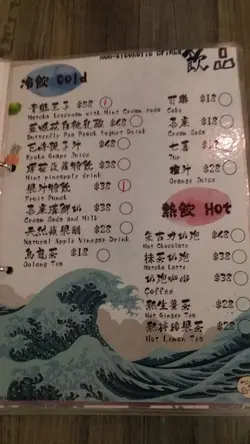 Non-alcoholic Drinks
飲品
冷飲 Cold
青蛙王子 $38
Matcha Icecream with Mint Cream soda
$48
Butterfly Pea Peach Yogurt Drink
巨峰提子汁 $48
Kyoho Grape Juice
薄荷菠蘿特飲 $38
Mint pineapple drink
果汁特飲 $38
Fruit Punch
忌廉溝鮮奶 $38
Cream Soda and Milk
天然蘋果醋 $28
Natural Apple Vinegar Drink
烏龍茶 $18
Oolong Tea
可樂 $18
Coke
忌廉 $18
Cream Soda
七喜 $18
7up
橙汁 $28
Orange Juice
熱飲 Hot
朱古力奶泡 $48
Hot Chocolate
抹茶奶泡 $48
Matcha Latte
奶泡咖啡 $38
Coffee
熱生薑茶 $28
Hot Ginger Tea
熱檸檬果茶 $28
Hot Lemon Tea